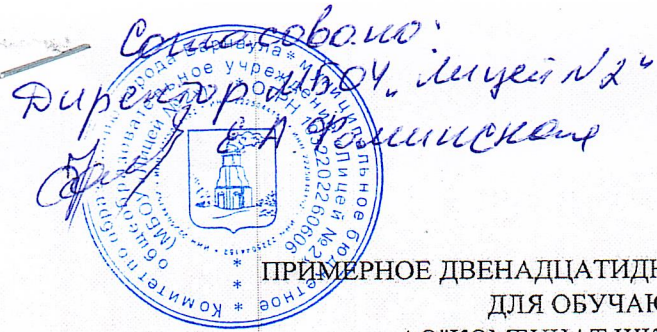 Согласовано:
Директор МБОУ „Лицей №2"
Е А Фоминская
Комитет по образованию города Барнаула * муниципальное бюджетное
общеобразовательное учреждение "Лицей №2"
(МБОУ "Лицей №2") * ОГРН 1022202260606
ПРИМЕРНОЕ ДВЕНАДЦАТИДН
ДЛЯ ОБУЧАЮ